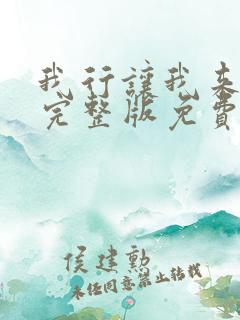 我行讓我來
完整版免費
侯建勳
未经同意禁止转载